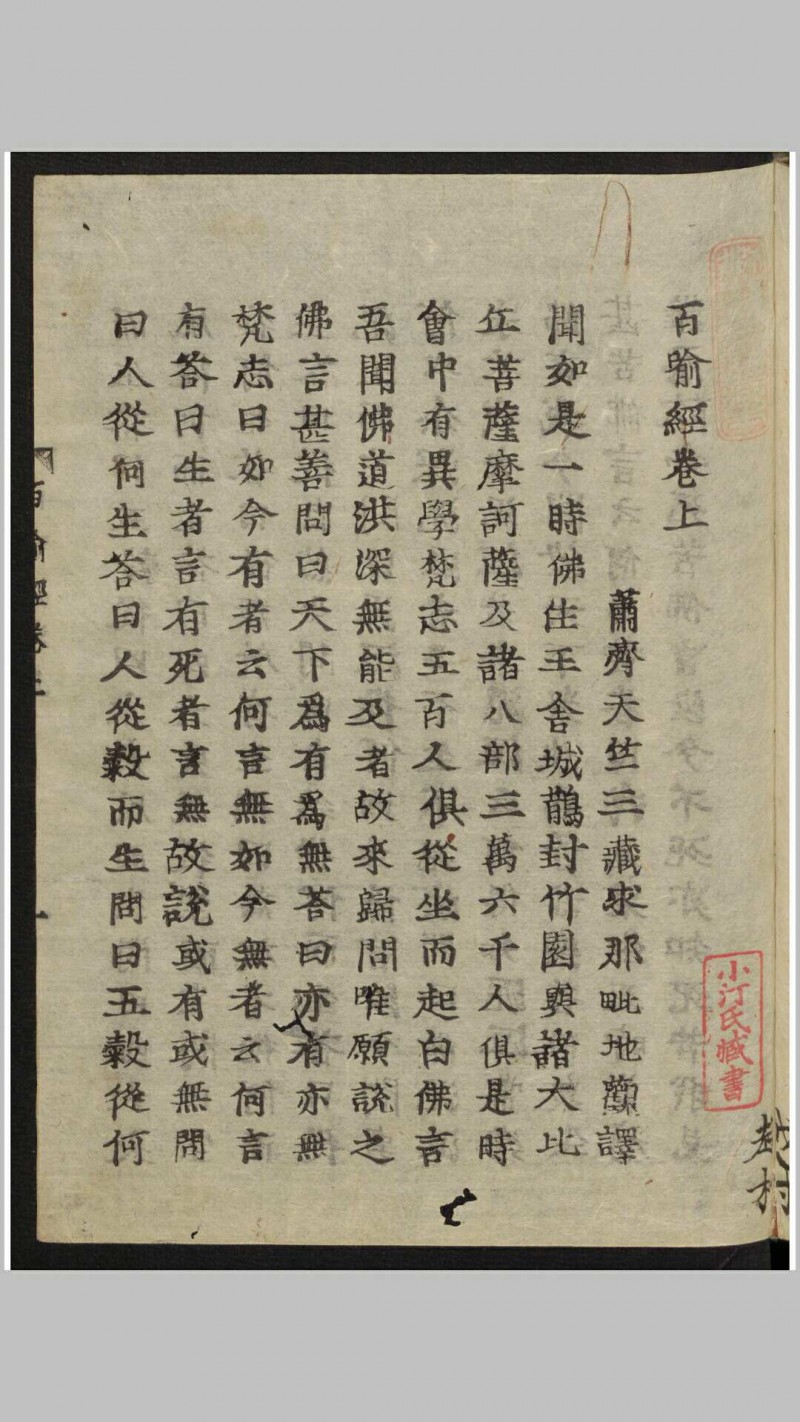 百喻經卷上
蕭齊天竺三藏求那毗地蘭譯
聞如是一時佛住王舍城鵲封竹園與諸大比
丘菩薩摩訶薩及諸八部三萬六千人俱是時
會中有異學梵志五百人俱從坐而起白佛言
吾聞佛道洪深無能及者故來歸問唯願說之
佛言甚善問曰天下爲有爲無答曰亦有亦無
梵志曰如今有者云何言無如今無者云何言
有答曰生者言有死者言無故說或有或無問
曰人從何生答曰人從穀而生問曰五穀從何
百喻經卷上
一
小汀氏藏書